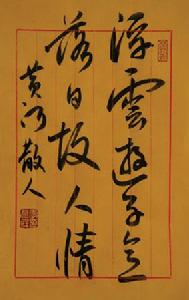 浮雲遊子意
落日故人情
黄河散人